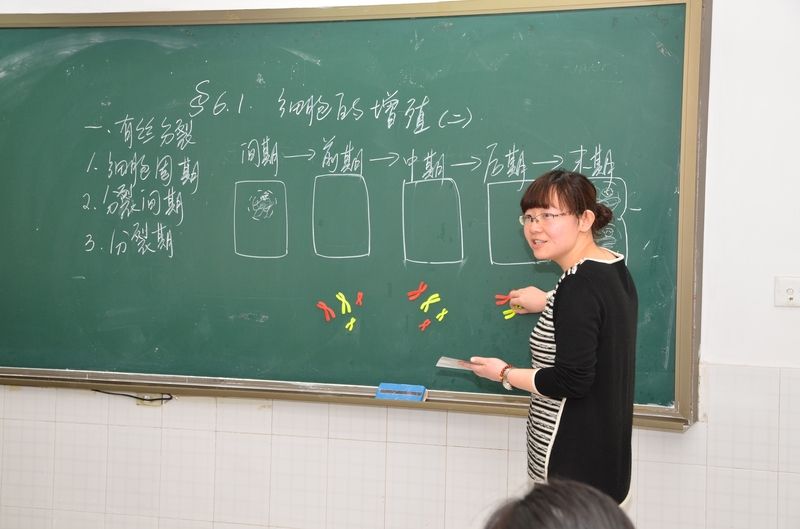 §6.1. 细胞的增殖(二)
一、有丝分裂
1. 细胞周期
2. 分裂间期
3. 分裂期
间期→前期→中期→后期→末期